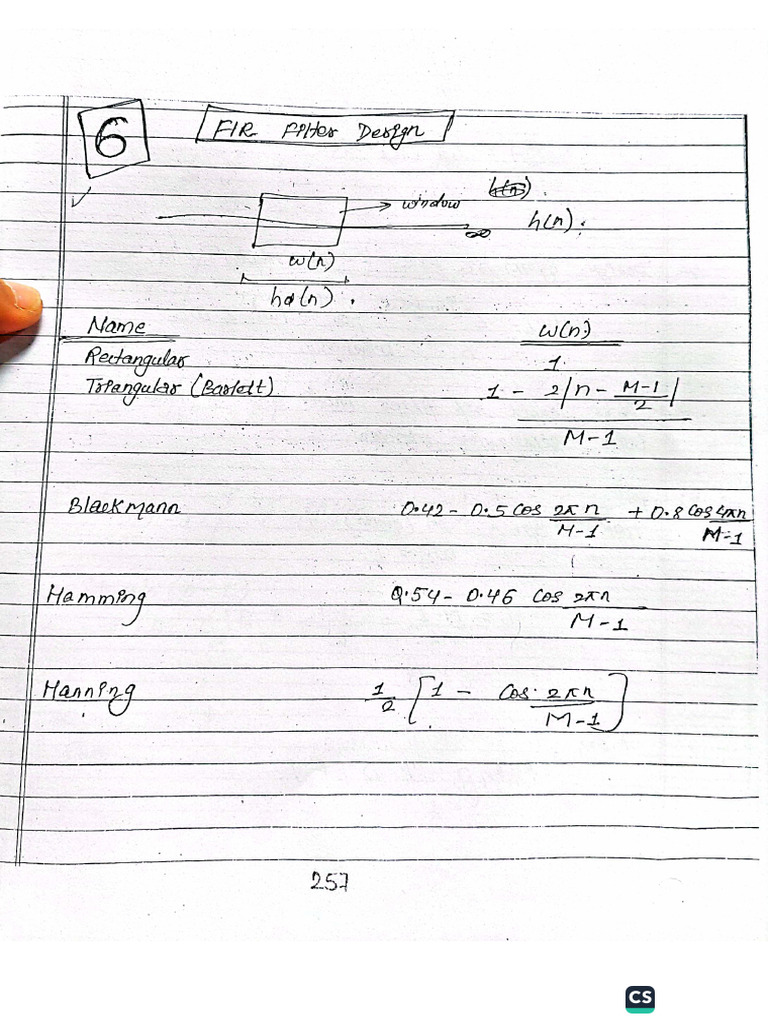 6
FIR Filter Design
window h(n).
∞ h(n).
w(n)
hd(n).
Name w(n)
Rectangular 1
Triangular (Barlett) 1 - 2|n - M-1/2| / M-1
Blackmann 0.42 - 0.5 cos 2πn/M-1 + 0.8 cos 4πn/M-1
Hamming 0.54 - 0.46 cos 2πn/M-1
Hanning 1/2 [1 - cos. 2πn/M-1]
257
CS